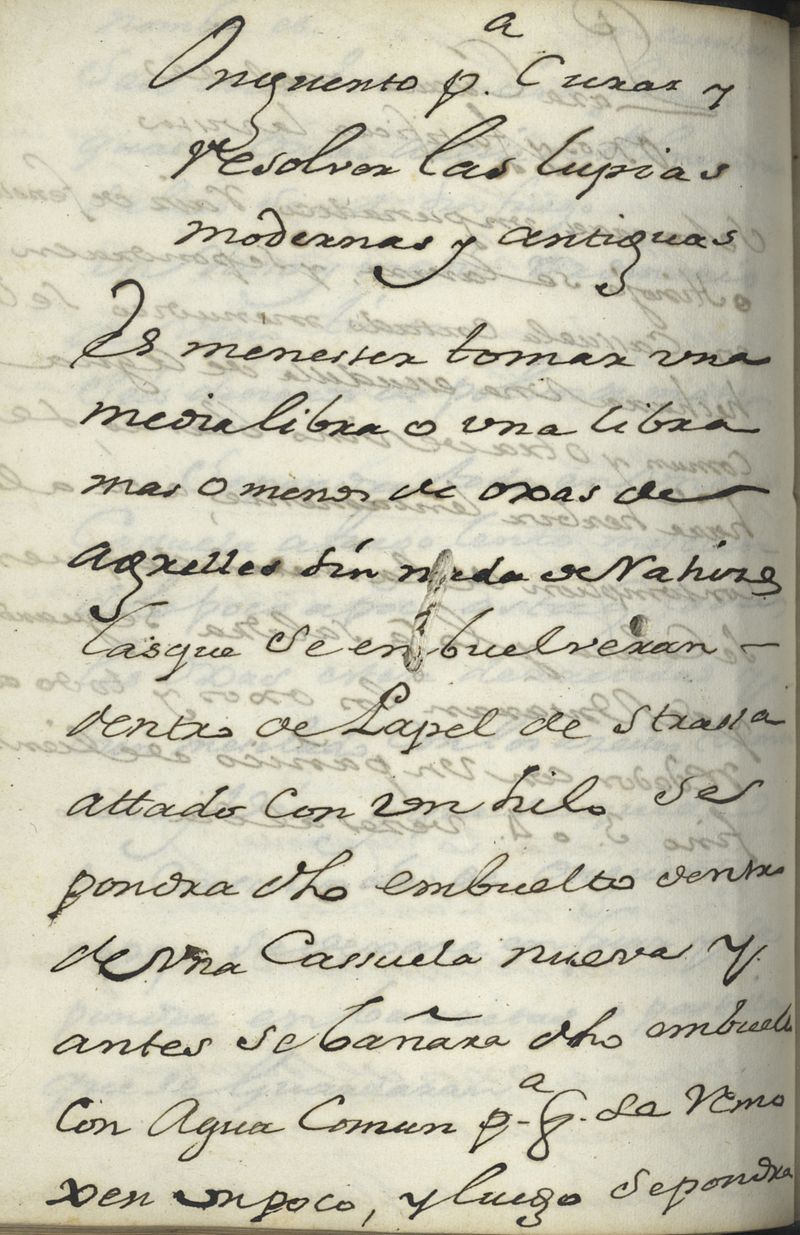 Unguento p.ª Curar y
resolver las lupias
modernas y antiguas
Es menester tomar una
media libra o una libra
mas o menos de oxas de
Agrelles sin rueda
las que se enbuelveran
dentro de Papel de Strassa
attado con un hilo se
pondra dho embuelto dentro
de una Cassuela nueva y
antes se bañara dho embuelto
Con Agua Comun p.ª q. se remo
xen un poco, y luego se pondra